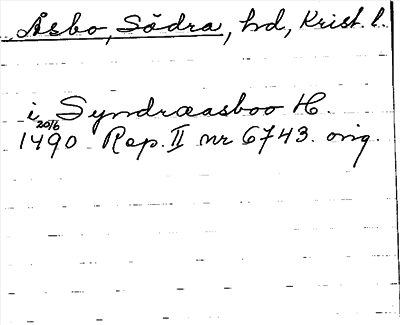 Åsbo, Södra, hd, Krist. l.
i Syndræasboo H.
1490 20/6 Rep. II nr 6743. orig.